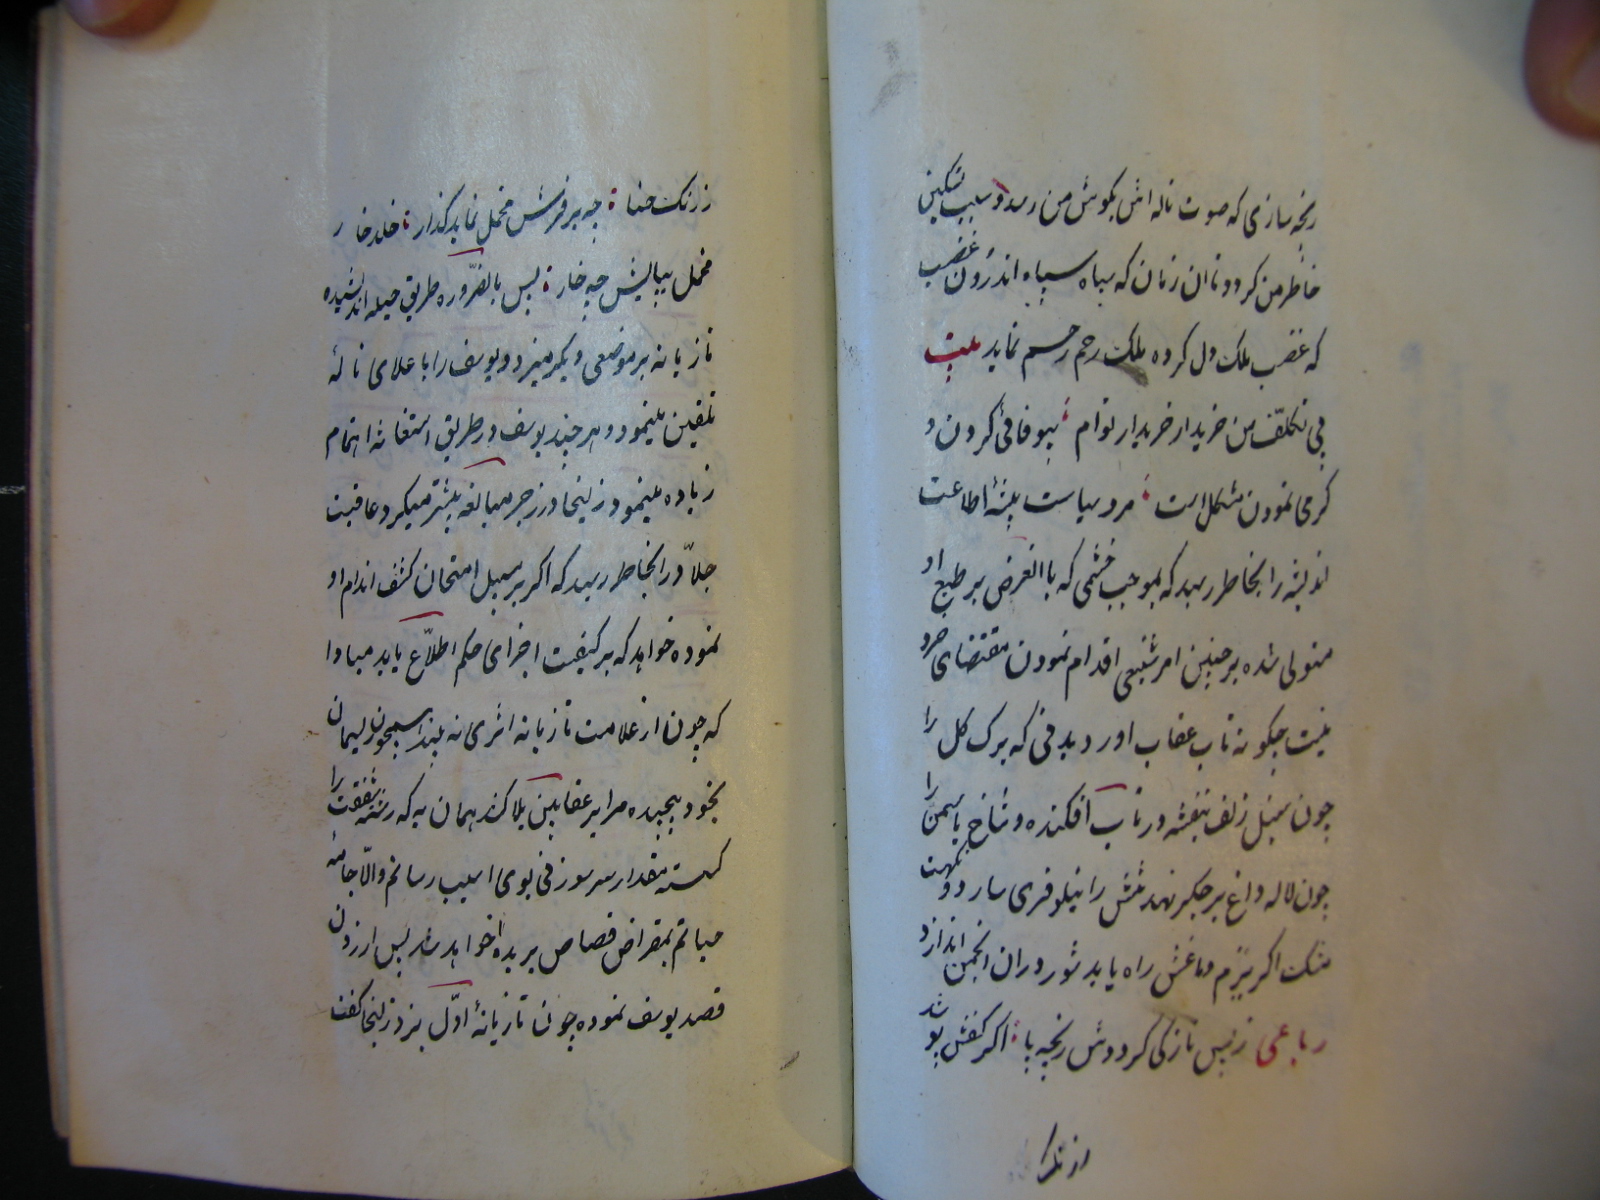 رنجه سازی که صوت ناله اش بکوش من رسد و سبب تسکین
خاطر من کردد تا ان زمان که سپاه سیاه اندرون غضب
که غضب ملک دل کرده ملک رحم رحم نماید بیت
بی تکلّف من خریدار خریدار توام بیوفائی کردن و
کرمی نمودن مشکل است مرد سیاست پیشهٔ اطاعت
اندیشه را بخاطر رسید که بموجب خشمی که باالعرض بر طبع او
متولی شده بر چنین امر شنیعی اقدام نمودن مقتضای خرد
نیست چکونه تاب عقاب اورد بدنی که برک کل را
چون سنبل زلف بنفشه در تاب افکنده و شاخ یاسمن را
چون لاله داغ بر جکر نهد تنش را نیلوفری سازد و نکهت
مشک اکر ببزم دماغش راه یابد شور دران انجمن اندازد
رباعی ز بس نازکی کرددش رنجه پا اکر کفش پوشد
ز رنک
ز رنک حنا چه بر فرش مخمل نماید کذار خلد خار
مخمل بپایش چه خار پس بالضّروره طریق حیله اندیشیده
تازیانه بر موضعی دیکر میزد و یوسف را باعلای نالهٔ
تلقین مینمود و هر چند یوسف در طریق استغاثه اهتمام
زیاده مینمود زلیخا در زجر مبالغه بیشتر میکرد عاقبت
جلاّد را بخاطر رسید که اکر بر سبیل امتحان کشف اندام او
نموده خواهد که بر کیفیت اجرای حکم اطلاّع یابد مبادا
که چون از علامت تازیانه اثری نه بیند همچون ریسمان
بخود پیچیده مرا بر عقابین بلا کند همان به که رشته شفقت را
کسسته مقدار سر سوزنی بوی اسیب رسانم والاّ جامهٔ
حیاتم بمقراض قصاص بریده خواهد شد پس از درون
قصد یوسف نموده چون تازیانهٔ اوّل بزد زلیخا کفت